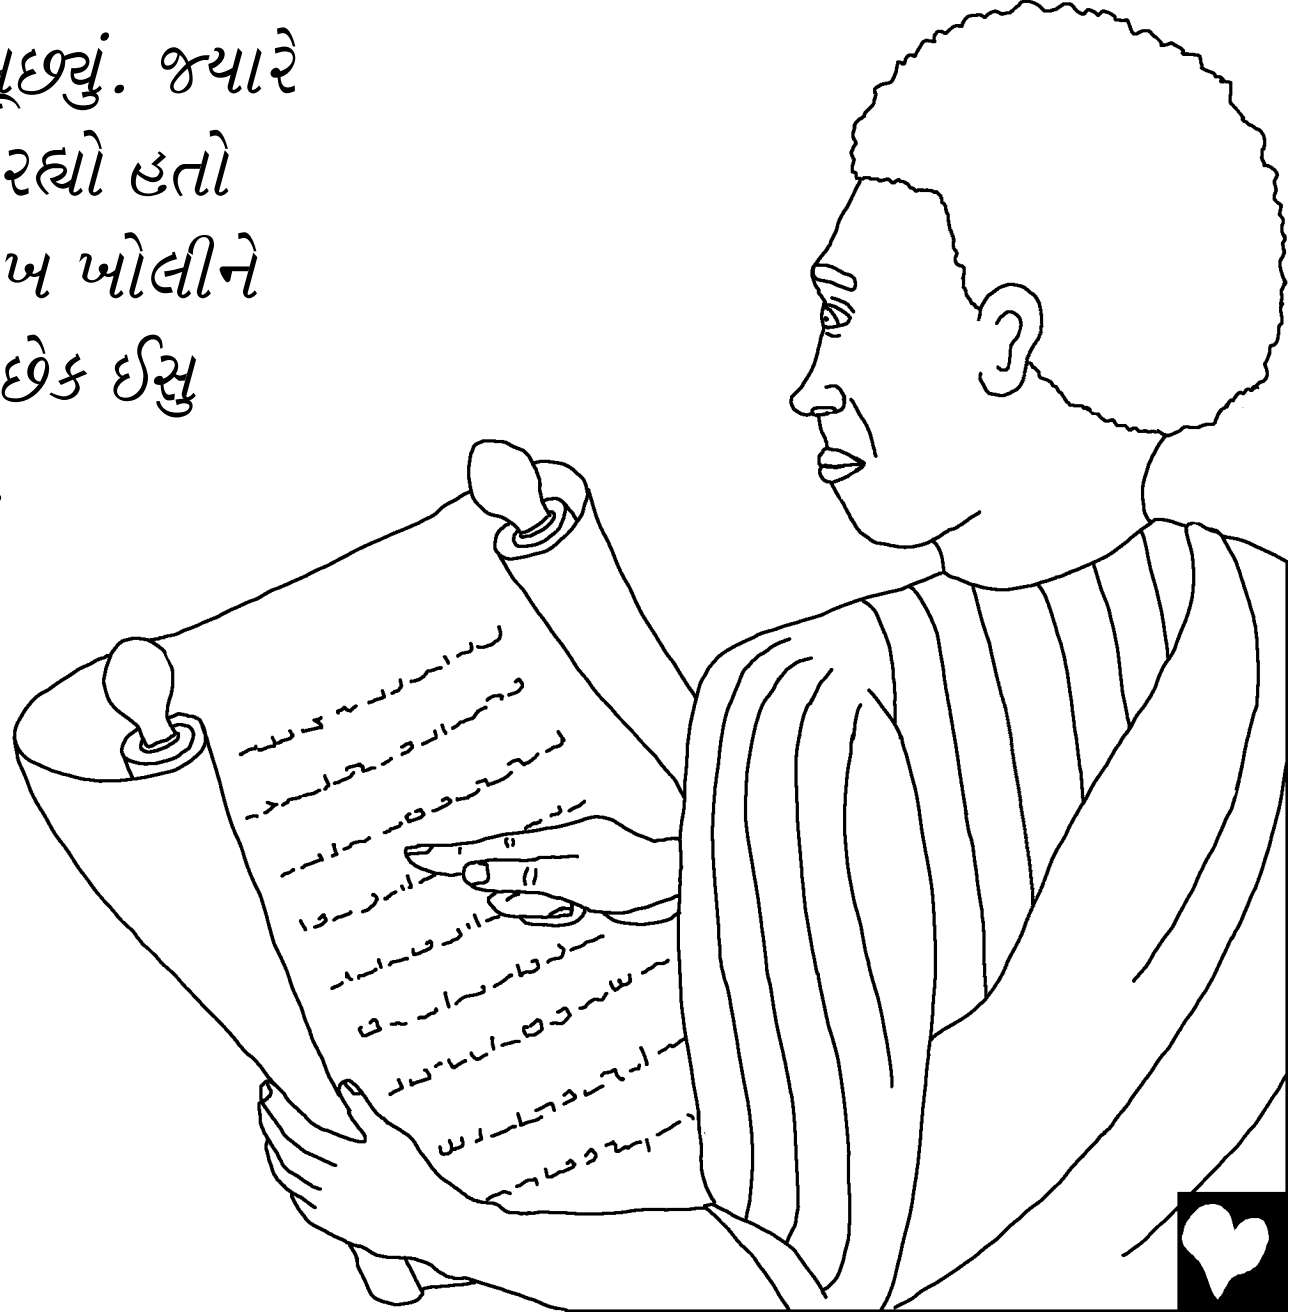 પૂછ્યું. જ્યારે
રહ્યો હતો
ખોલીને
છેક ઈસુ